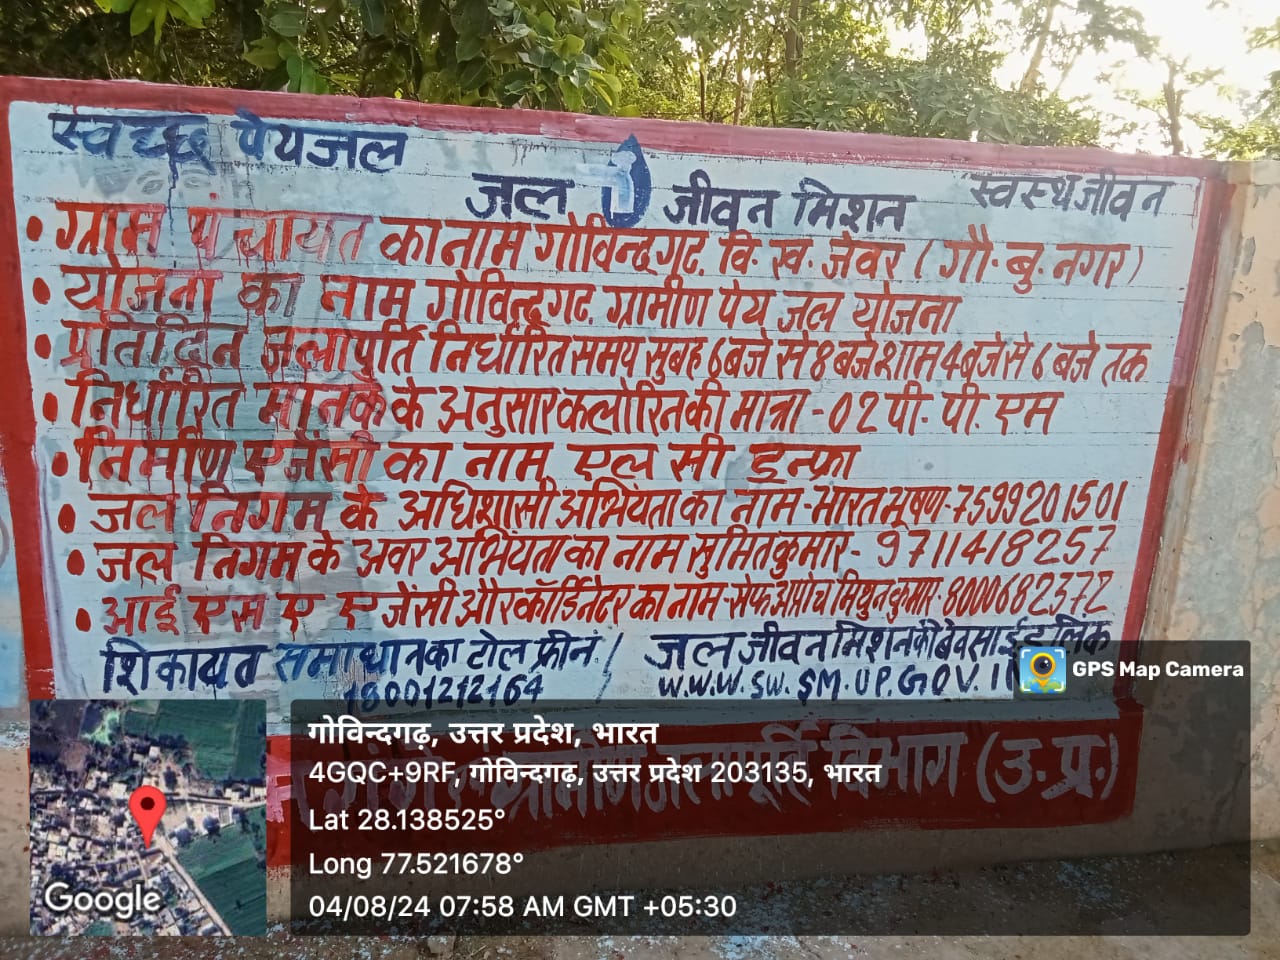 स्वच्छ पेयजल
जल जीवन मिशन
स्वस्थ जीवन
• ग्राम पंचायत का नाम गोविन्दगढ़. वि. ख. जेवर (गौ. बु. नगर)
• योजना का नाम गोविन्दगढ़. ग्रामीण पेय जल योजना
• प्रतिदिन जलापुर्ति निर्धारित समय सुबह 6 बजे से 8 बजे शाम 4 बजे से 6 बजे तक
• निर्धारित मानके के अनुसार कलोरिन की मात्रा - 02 पी. पी. एम
• निर्माण एजेंसी का नाम एल सी इन्फ्रा
• जल निगम के अधिशासी अभियंता का नाम - भारत भूषण - 7599201501
• जल निगम के अवर अभियंता का नाम सुमित कुमार - 9711418257
• आई एस ए एजेंसी और कॉर्डिनेटर का नाम - सेफ अप्रोच मिथुन कुमार - 8000682372
शिकायत समाधान का टोल फ्री नं. / जल जीवन मिशन की बेवसाईट लिंक
18001212164 W.W.W. SW. SM. UP. GOV. I
ग्रामीण जलापूर्ति विभाग (उ. प्र.)
GPS Map Camera
गोविन्दगढ़, उत्तर प्रदेश, भारत
4GQC+9RF, गोविन्दगढ़, उत्तर प्रदेश 203135, भारत
Lat 28.138525°
Long 77.521678°
04/08/24 07:58 AM GMT +05:30
Google